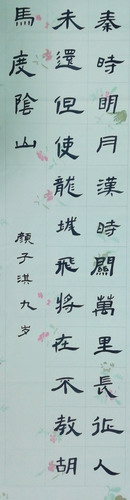 秦時明月漢時關萬里長征人
未還但使龍城飛将在不教胡
馬度陰山
顏子淇九岁